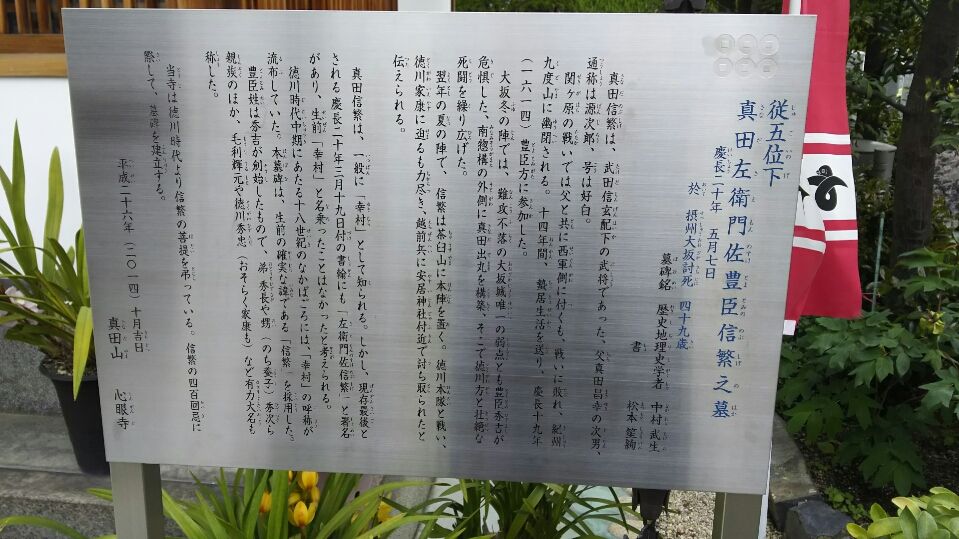 従五位下
真田左衛門佐豊臣信繁之墓
慶長二十年 五月七日
於 摂州大坂討死 四十九歳
墓碑銘 歴史地理史学者 中村 武生
書 松本 笙絢
真田信繁は、武田信玄配下の武将であった、父真田昌幸の次男、
通称は源次郎、号は好白。
関ヶ原の戦いでは父と共に西軍側に付くも、戦いに敗れ、紀州
九度山に幽閉される。十四年間、蟄居生活を送り、慶長十九年
(一六一四) 豊臣方に参加した。
大坂冬の陣では、難攻不落の大坂城唯一の弱点とも豊臣秀吉が
危惧した、南惣構の外側に真田出丸を構築、そこで徳川方と壮絶な
死闘を繰り広げた。
翌年の夏の陣で、信繁は茶臼山に本陣を置く。徳川本隊と戦い、
徳川家康に迫るも力尽き、越前兵に安居神社付近で討ち取られたと
伝えられる。
真田信繁は、一般に「幸村」として知られる。しかし、現存最後と
される慶長二十年三月十九日付の書翰にも「左衛門佐信繁」と署名
があり、生前「幸村」と名乗ったことはなかったと考えられる。
徳川時代中期にあたる十八世紀のなかばごろには、「幸村」の呼称が
流布していた。本墓碑は、生前の確実な諱である「信繁」を採用した。
豊臣姓は秀吉が創始したもので、弟 秀長や甥(のち養子)秀次ら
親族のほか、毛利輝元や徳川秀忠(おそらく家康も)など有力大名も
称した。
当寺は徳川時代より信繁の菩提を弔っている。信繁の四百回忌に
際して、墓碑を建立する。
平成二十六年(二〇一四)十月吉日
真田山 心眼寺